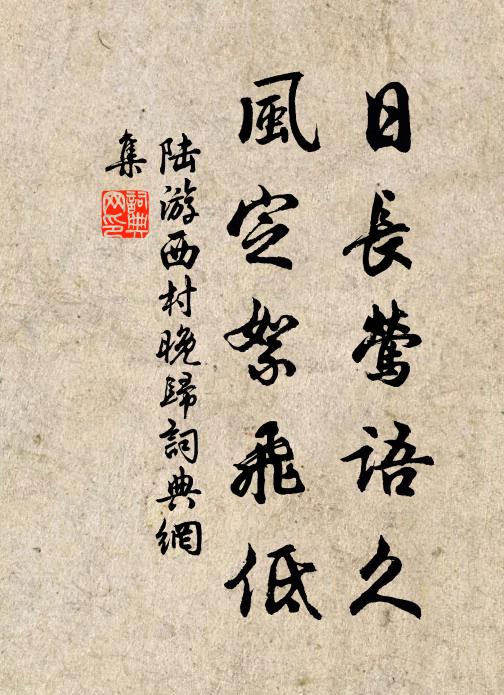 日長鶯語久
風定絮飛低
陸游西村晚歸詞典網
集
詞典
网印